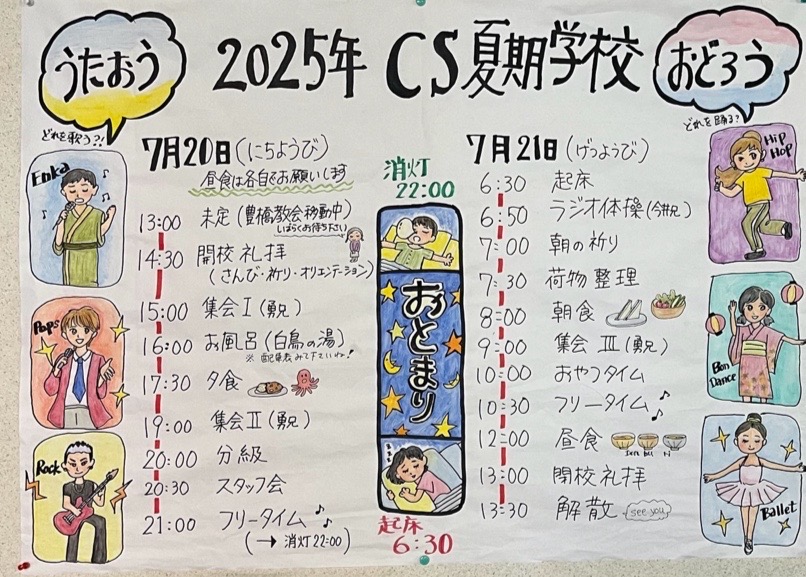 うたおう
2025年 CS夏期学校
おどろう
どれを歌う?!
どれを踊る?
Enka
Pops
Rock
7月20日(にちようび)
昼食は各自でお願いします
13:00 未定(豊橋教会移動中)
しばらくお待ち下さい
14:30 開校礼拝
(さんび・祈り・オリエンテーション)
15:00 集会Ⅰ(勇兄)
16:00 お風呂(白鳥の湯)
※配車表みて下さいね!
17:30 夕食
19:00 集会Ⅱ(勇兄)
20:00 分級
20:30 スタッフ会
21:00 フリータイム♪
(→消灯22:00)
消灯
22:00
おとまり
起床
6:30
7月21日(げつようび)
6:30 起床
6:50 ラジオ体操(今井兄)
7:00 朝の祈り
7:30 荷物整理
8:00 朝食
9:00 集会Ⅲ(勇兄)
10:00 おやつタイム
10:30 フリータイム♪
12:00 昼食
Don bu ri
13:00 閉校礼拝
13:30 解散 see you
Hip Hop
Bon Dance
Ballet